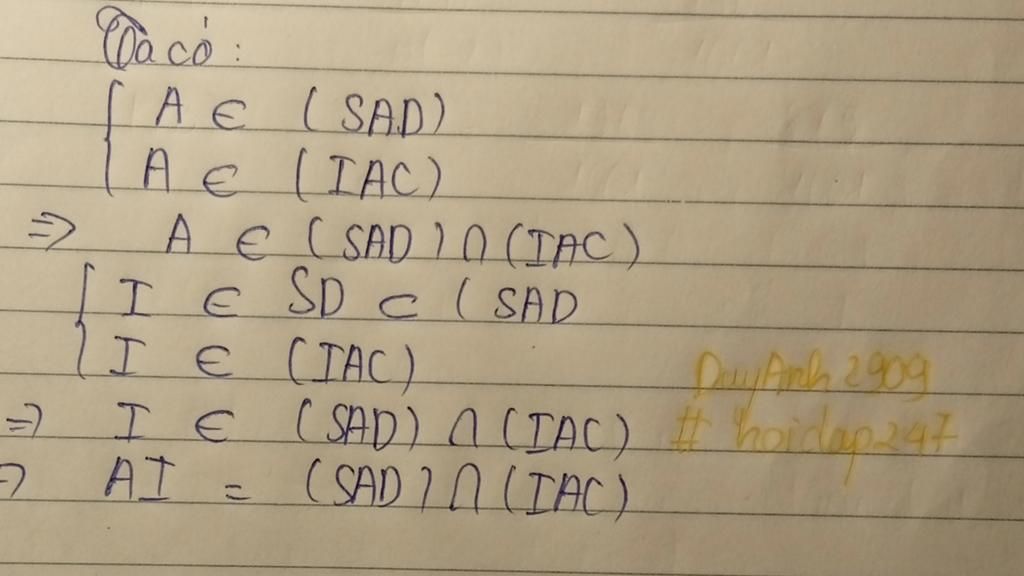 Ta có:
{ A ∈ (SAD)
A ∈ (IAC)
⇒ A ∈ (SAD) ∩ (IAC)
{ I ∈ SD ⊂ (SAD
I ∈ (IAC)
⇒ I ∈ (SAD) ∩ (IAC)
⇒ AI = (SAD) ∩ (IAC)
DuyAnh2909
# hoidap247